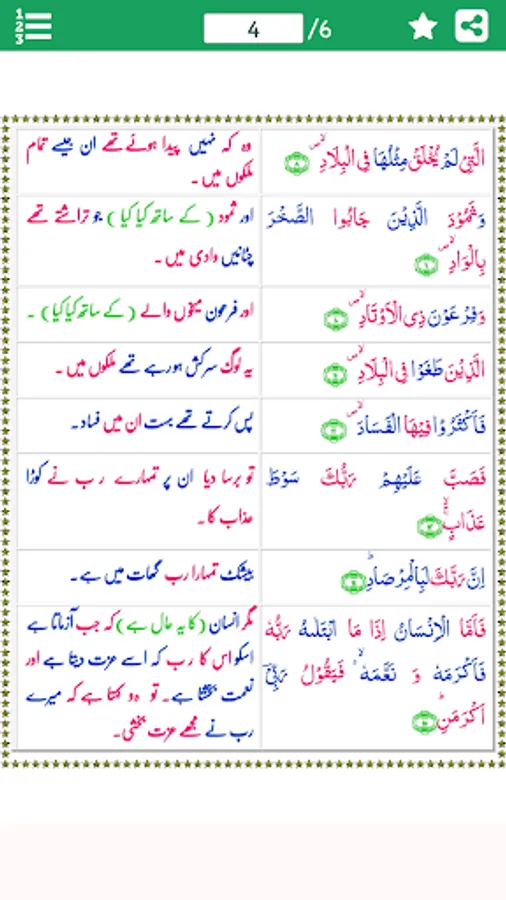 4 /6
الَّتِیۡ لَمۡ یُخۡلَقۡ مِثۡلُهَا فِی الۡبِلَادِ ۙ
وہ کہ نہیں پیدا ہوئے تھے ان جیسے تمام
ملکوں میں۔
وَثَمُوۡدَ الَّذِیۡنَ جَابُوا الصَّخۡرَ
بِالۡوَادِ ۙ
اور ثمود (کے ساتھ کیا کیا) جو تراشتے تھے
چٹانیں وادی میں۔
وَفِرۡعَوۡنَ ذِی الۡاَوۡتَادِ ۙ
اور فرعون میخوں والے (کے ساتھ کیا کیا)۔
الَّذِیۡنَ طَغَوۡا فِی الۡبِلَادِ ۙ
یہ لوگ سرکش ہو رہے تھے ملکوں میں۔
فَاَكۡثَرُوۡا فِیۡهَا الۡفَسَادَ ۙ
پس کرتے تھے بہت ان میں فساد۔
فَصَبَّ عَلَیۡهِمۡ رَبُّكَ سَوۡطَ
عَذَابٍ ۚۙ
تو برسا دیا ان پر تمہارے رب نے کوڑا
عذاب کا۔
اِنَّ رَبَّكَ لَبِالۡمِرۡصَادِ ؕ
بیشک تمہارا رب گھات میں ہے۔
فَاَمَّا الۡاِنۡسَانُ اِذَا مَا ابۡتَلٰىهُ رَبُّهٗ
فَاَكۡرَمَهٗ وَ نَعَّمَهٗ ۙ فَیَقُوۡلُ رَبِّیۡۤ
اَكۡرَمَنِ ؕ
مگر انسان (کا یہ حال ہے) کہ جب آزماتا ہے
اسکو اس کا رب کہ اسے عزت دیتا ہے اور
نعمت بخشتا ہے۔ تو وہ کہتا ہے کہ میرے
رب نے مجھے عزت بخشی۔